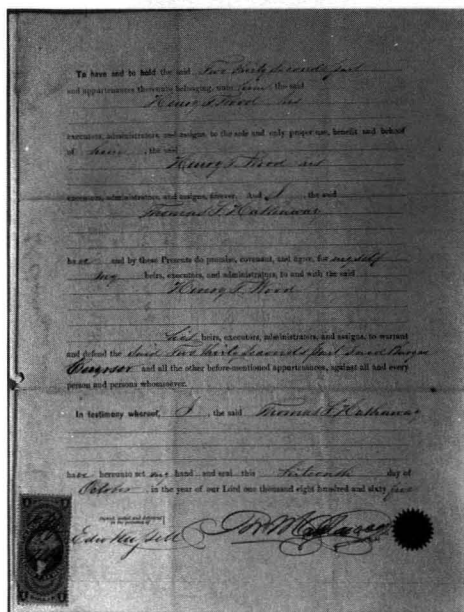 To have and to hold the said Two thirty seconds part
and appurtenances thereunto belonging, unto him the said
Henry T. Wood his
executors, administrators, and assigns, to the sole and only proper use, benefit and behoof
of him, the said
Henry T. Wood his
executors, administrators, and assigns, forever. And I, the said
Thomas S. Hathaway
have and by these Presents do promise, covenant, and agree, for myself
my heirs, executors, and administrators, to and with the said
Henry T. Wood
his heirs, executors, administrators, and assigns, to warrant
and defend the said two thirty seconds part said Barque
and all the other before-mentioned appurtenances, against all and every
person and persons whomsoever.
In testimony whereof, I, the said Thomas S. Hathaway
have hereunto set my hand and seal this day of
October, in the year of our Lord one thousand eight hundred and sixty five
Signed, sealed and delivered
in the presence of
Hathaway